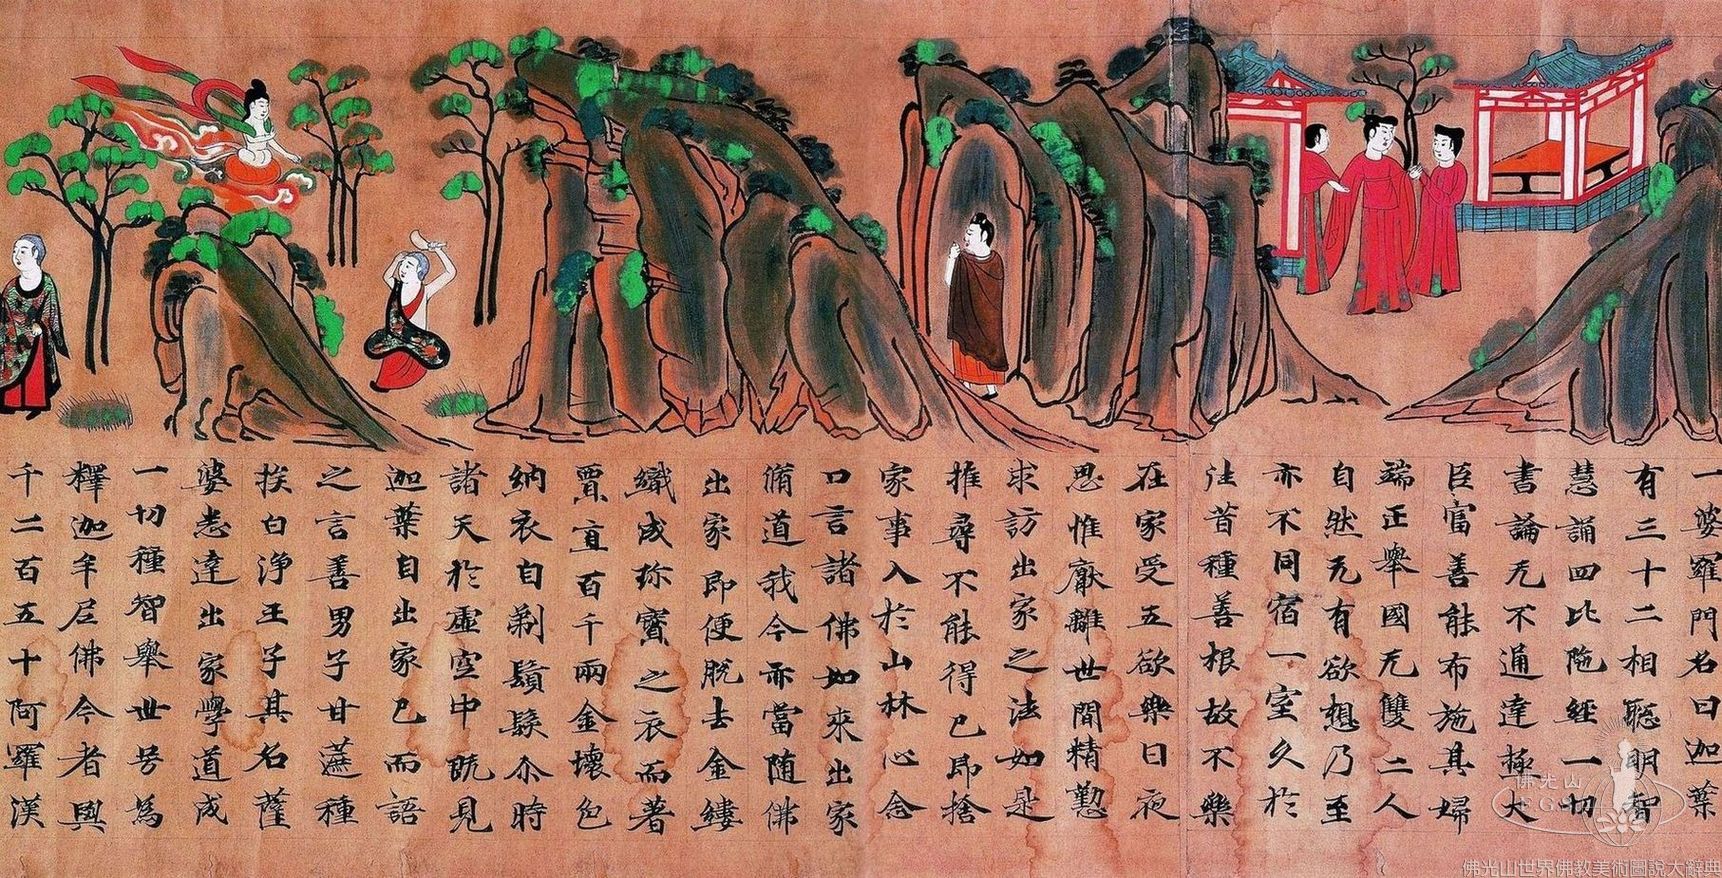 一婆羅門名曰迦葉
有三十二相聡明智
慧誦四比陁經一切
書論无不通達極大
臣富善能布施其婦
端正舉國无雙二人
自然无有欲想乃至
亦不同宿一室久於
往昔種善根故不樂
在家受五欲樂日夜
思惟猒離世間精懃
求訪出家之法如是
推尋不能得已即捨
家事入於山林心念
口言諸佛如來出家
脩道我今亦當随佛
出家即便脱去金縷
織成珎寶之衣而著
賈直百千兩金壞色
納衣自剃鬚髮尒時
諸天於虛空中既見
迦葉自出家已而語
之言善男子甘蔗種
族白淨王子其名薩
婆悉達出家學道成
一切種智舉世号為
釋迦牟尼佛今者與
千二百五十阿羅漢
佛光山
FGS
佛光山世界佛教美術圖說大辭典